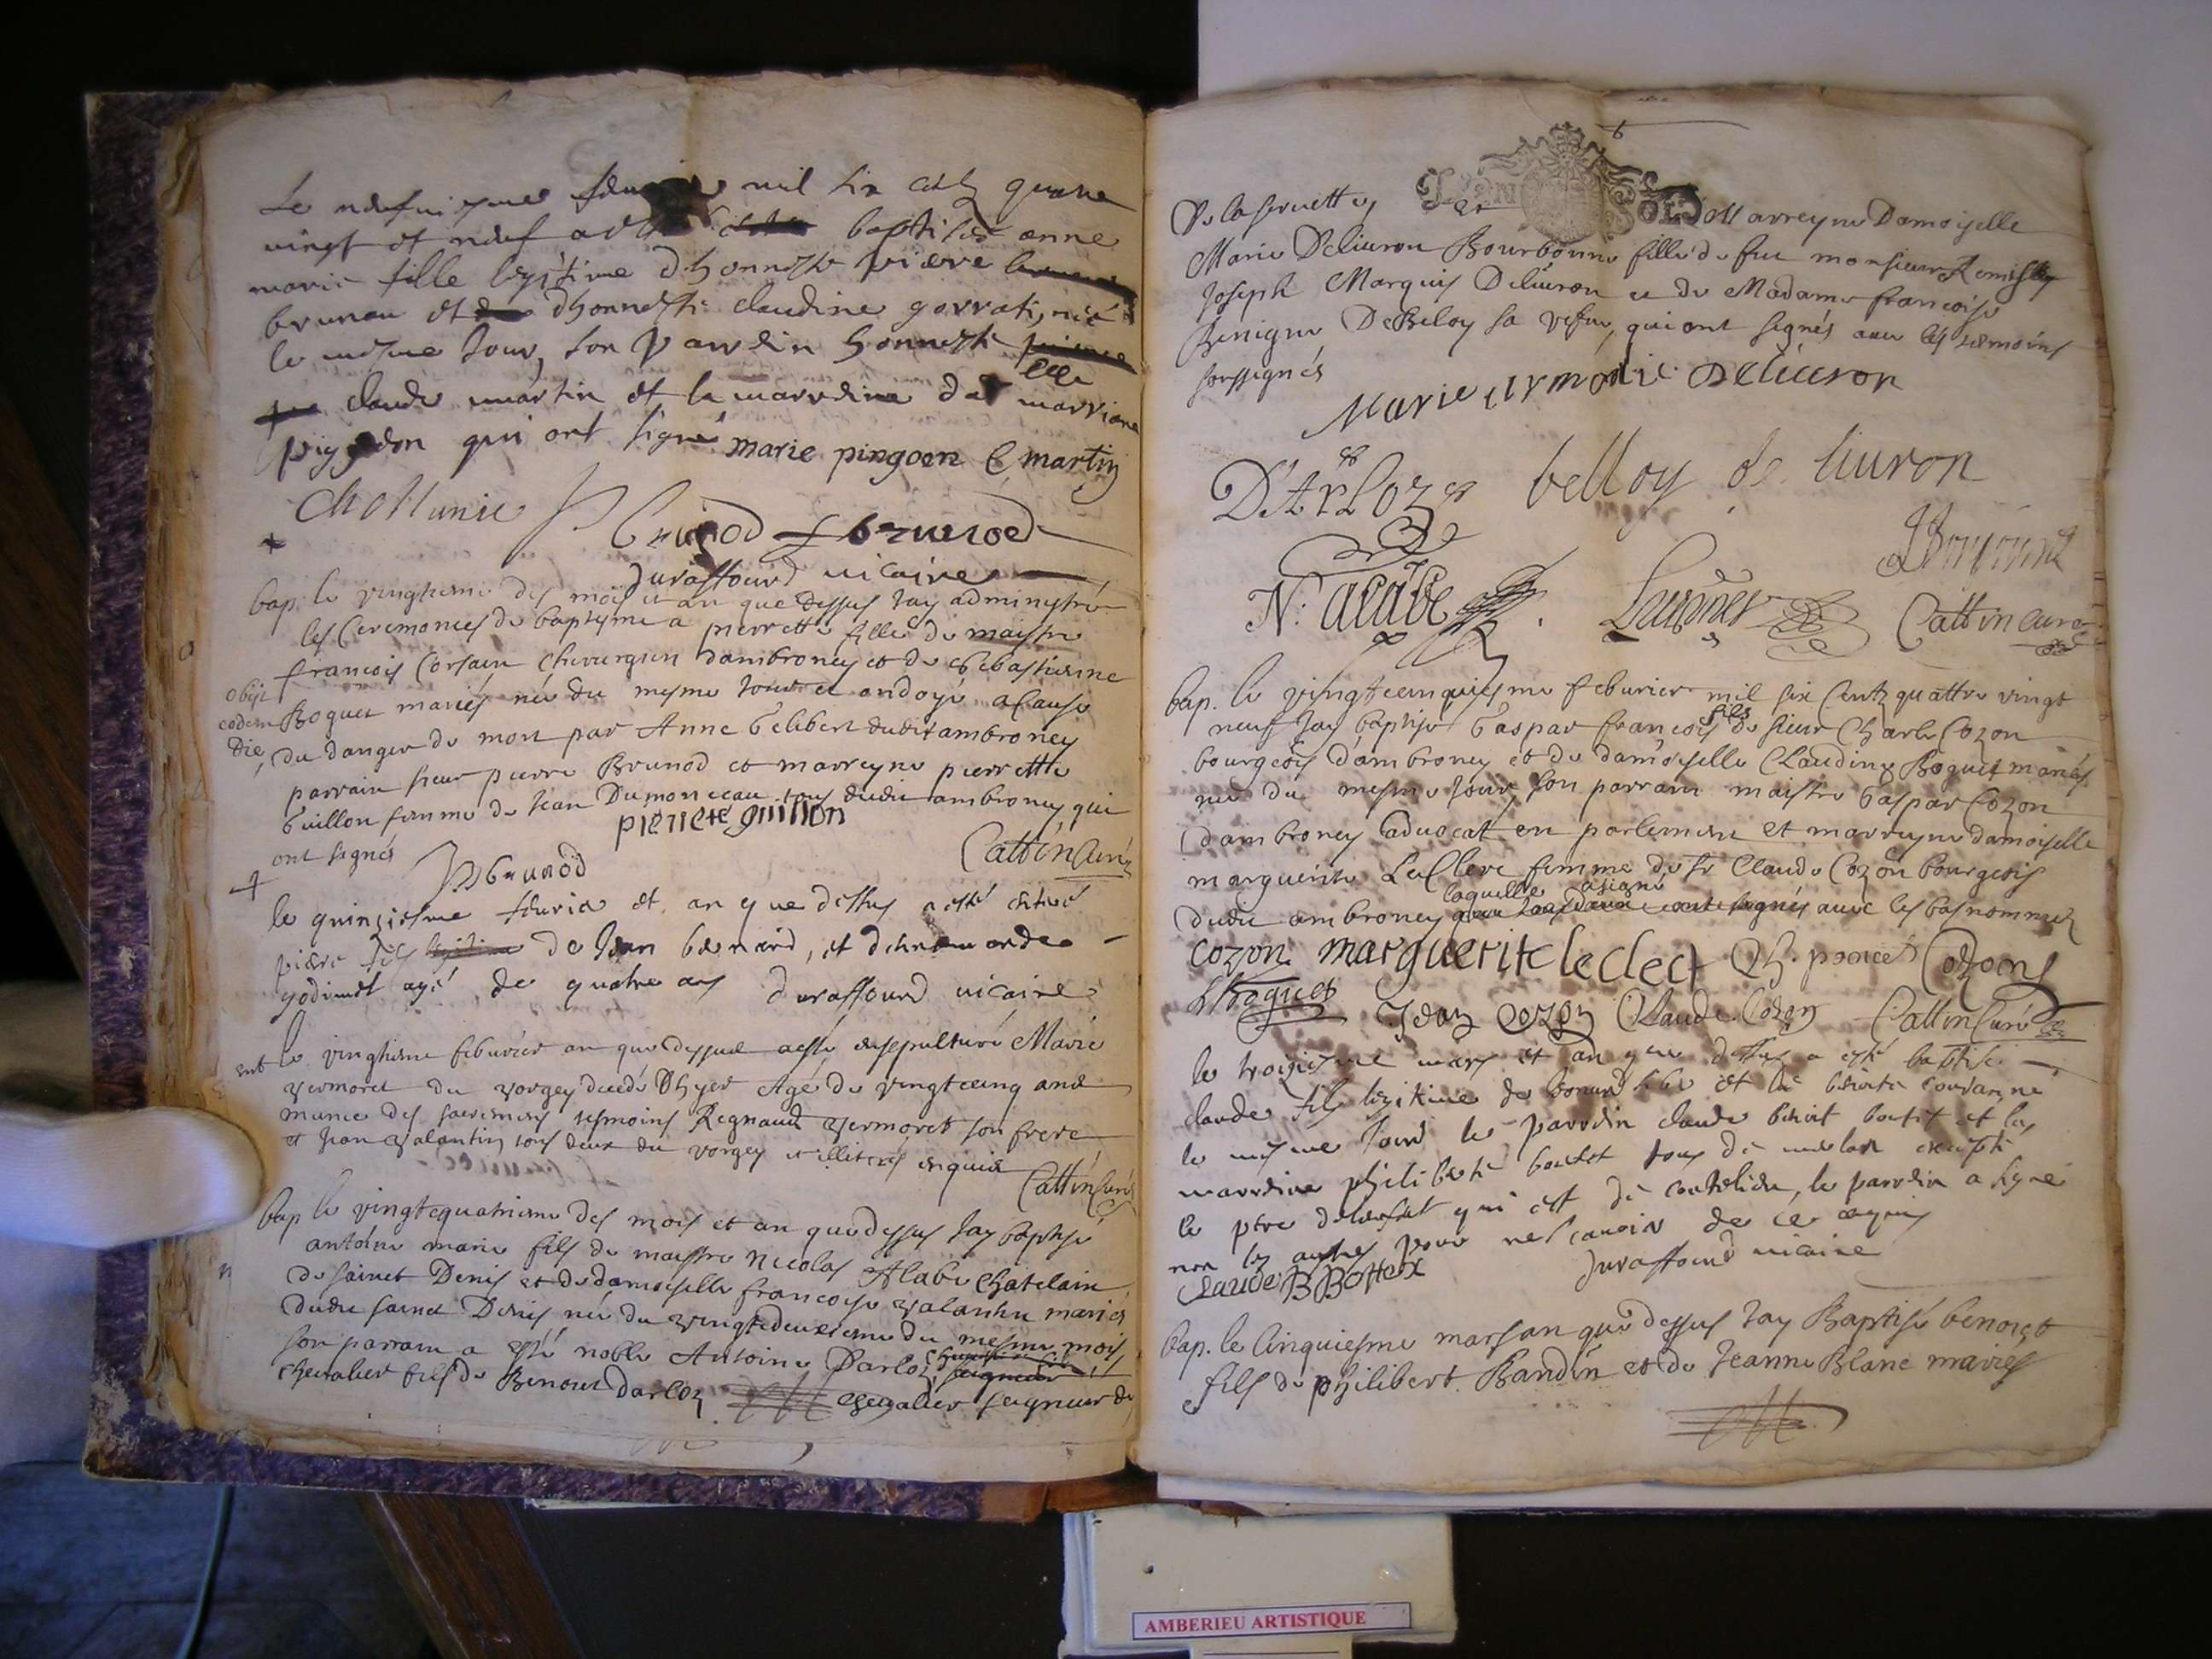 Le neufuiesme feurier mil six centz quatre
vingt et neuf a esté baptisée anne
marie fille legitime dhonneste pierre
brunau et dhonneste claudine garrati, née
le mesme Jour, son parrdin honneste
claude martin et la marrdine dlle marriane
pingeon qui ont signé marie pingoen C martin
Brunod brunod
Duraffourd uicaire
bap. le vingtiesme des mois et an que dessus Jay administré
les Ceremonies du baptesme a pierrette fille de maistre
francois Corsain Chirurgien dambroney et de Sebastienne
obijt
eodem
die
Boguet mariés née du mesme Jour et ondoyé a cause
du danger de mort par Anne Gelibert dudit ambroney
parrain sieur pierre Brunod et marreyne pierrette
Guillon femme de Jean Dumonceau tous dudit ambroney qui
ont signés pierrete guillon
Brunod Cattin Curé
le quinziesme feurier et an que dessus a esté enteré
piere fils de Jean bernard, et
godimet agé de quatre ans duraffourd uicaire
ent le vingtiesme feburier an que dessus a esté ensepulturé Marie
vermoret du vorgey decedé Dhyer Agé de vingtcinq ans
munie des sacremens tesmoins Regnaud vermoret son frere
et Jean valantin tous deux du vorgey et illiterés enquis
Cattin Curé
bap le vingtequatriesme des mois et an que dessus Jay baptisé
antoine marie fils de maistre Nicolas Alabe Chatelain
de sainct Denis et de damoiselle francoise valantin mariés
dudit sainct Denis née du vingtedeuxiesme du mesme mois
son parrain a esté noble Antoine Darloz
chevalier fils de Benoist darloz chevalier seigneur de
6
De la seruette, et Marreyne Damoyselle
Marie Deliuron Bourbonne fille de feu monsieur
Joseph Marquis Deliuron et de Madame francoise
Benigne DeBeloy sa vefue, qui ont signés auec les tesmoins
soussignés
Marie armodie Deliuron
D'Arloz belloy de liuron
N. alabe Cattin curé
bap. le vingtcinquiesme feburier mil six centz quattre vingt
neuf Jay baptisé Gaspar francois fils de sieur Charle Cozon
bourgeois d'ambroney et de damoyselle Claudine Boguet mariés
né du mesme Jour, son parrain maistre Gaspar Cozon
dambroney aduocat en parlement et marreyne damoiselle
marguerite LeClerc femme de sr Claude Cozon bourgeois
laquelle a signé
dudit ambroney auec les bas nommez
cozon marguerite leclerc Ch. poncet Cozon
Boguet Jean Cozon Claude Cozon Cattin Curé
le troiziesme mars et an que dessus a esté baptisé
claude fils legitime de
le mesme Jour le parrdin claude benoit et la
marrdine philiberte tous de excepté
le pere qui est de, le parrdin a signé
non les autres pour ne scauoir de ce enquis
Claude B Bottex Duraffourd uicaire
bap. le Cinquiesme mars an que dessus Jay Baptisé benoist
fils de philibert Bandin et de Jeanne Blanc mariés
AMBERIEU ARTISTIQUE